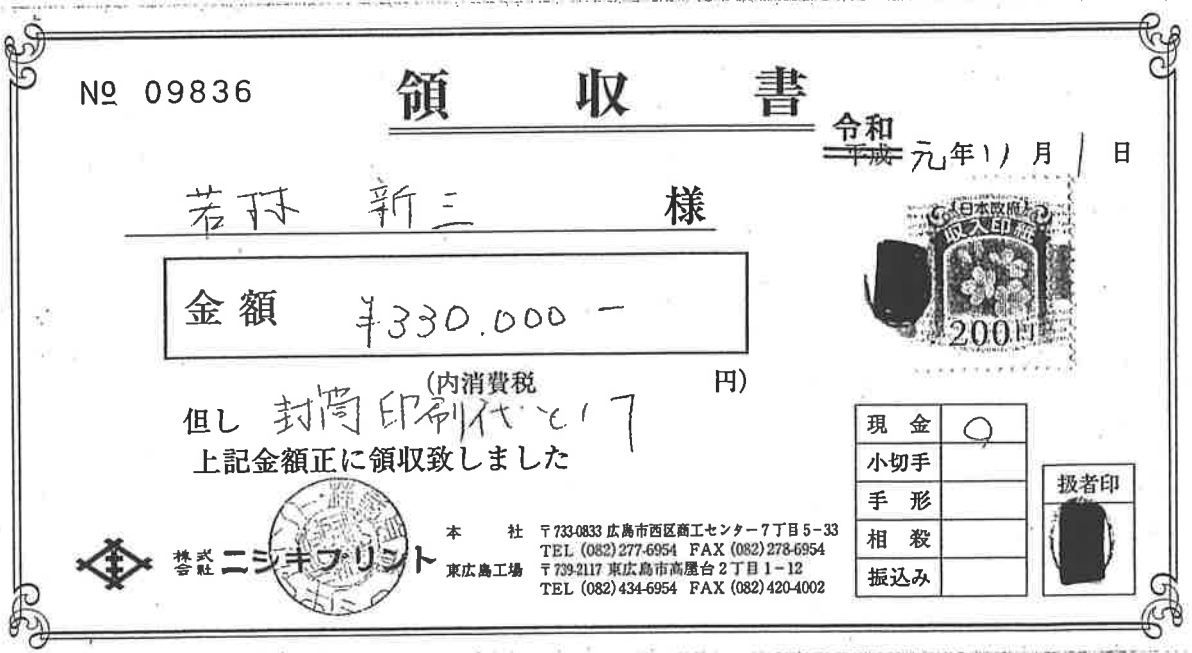 № 09836
領収書
令和
平成 元年11月1日
若林 新三 様
日本政府
収入印紙
200円
金額 ¥330.000-
(内消費税 円)
但し 封筒印刷代として
上記金額正に領収致しました
現金 ○
小切手
手形
相殺
振込み
扱者印
株式会社 ニシキプリント
本社 〒733-0833 広島市西区商工センター7丁目5-33
TEL (082)277-6954 FAX (082)278-6954
東広島工場 〒739-2117 東広島市高屋台2丁目1-12
TEL (082)434-6954 FAX (082)420-4002